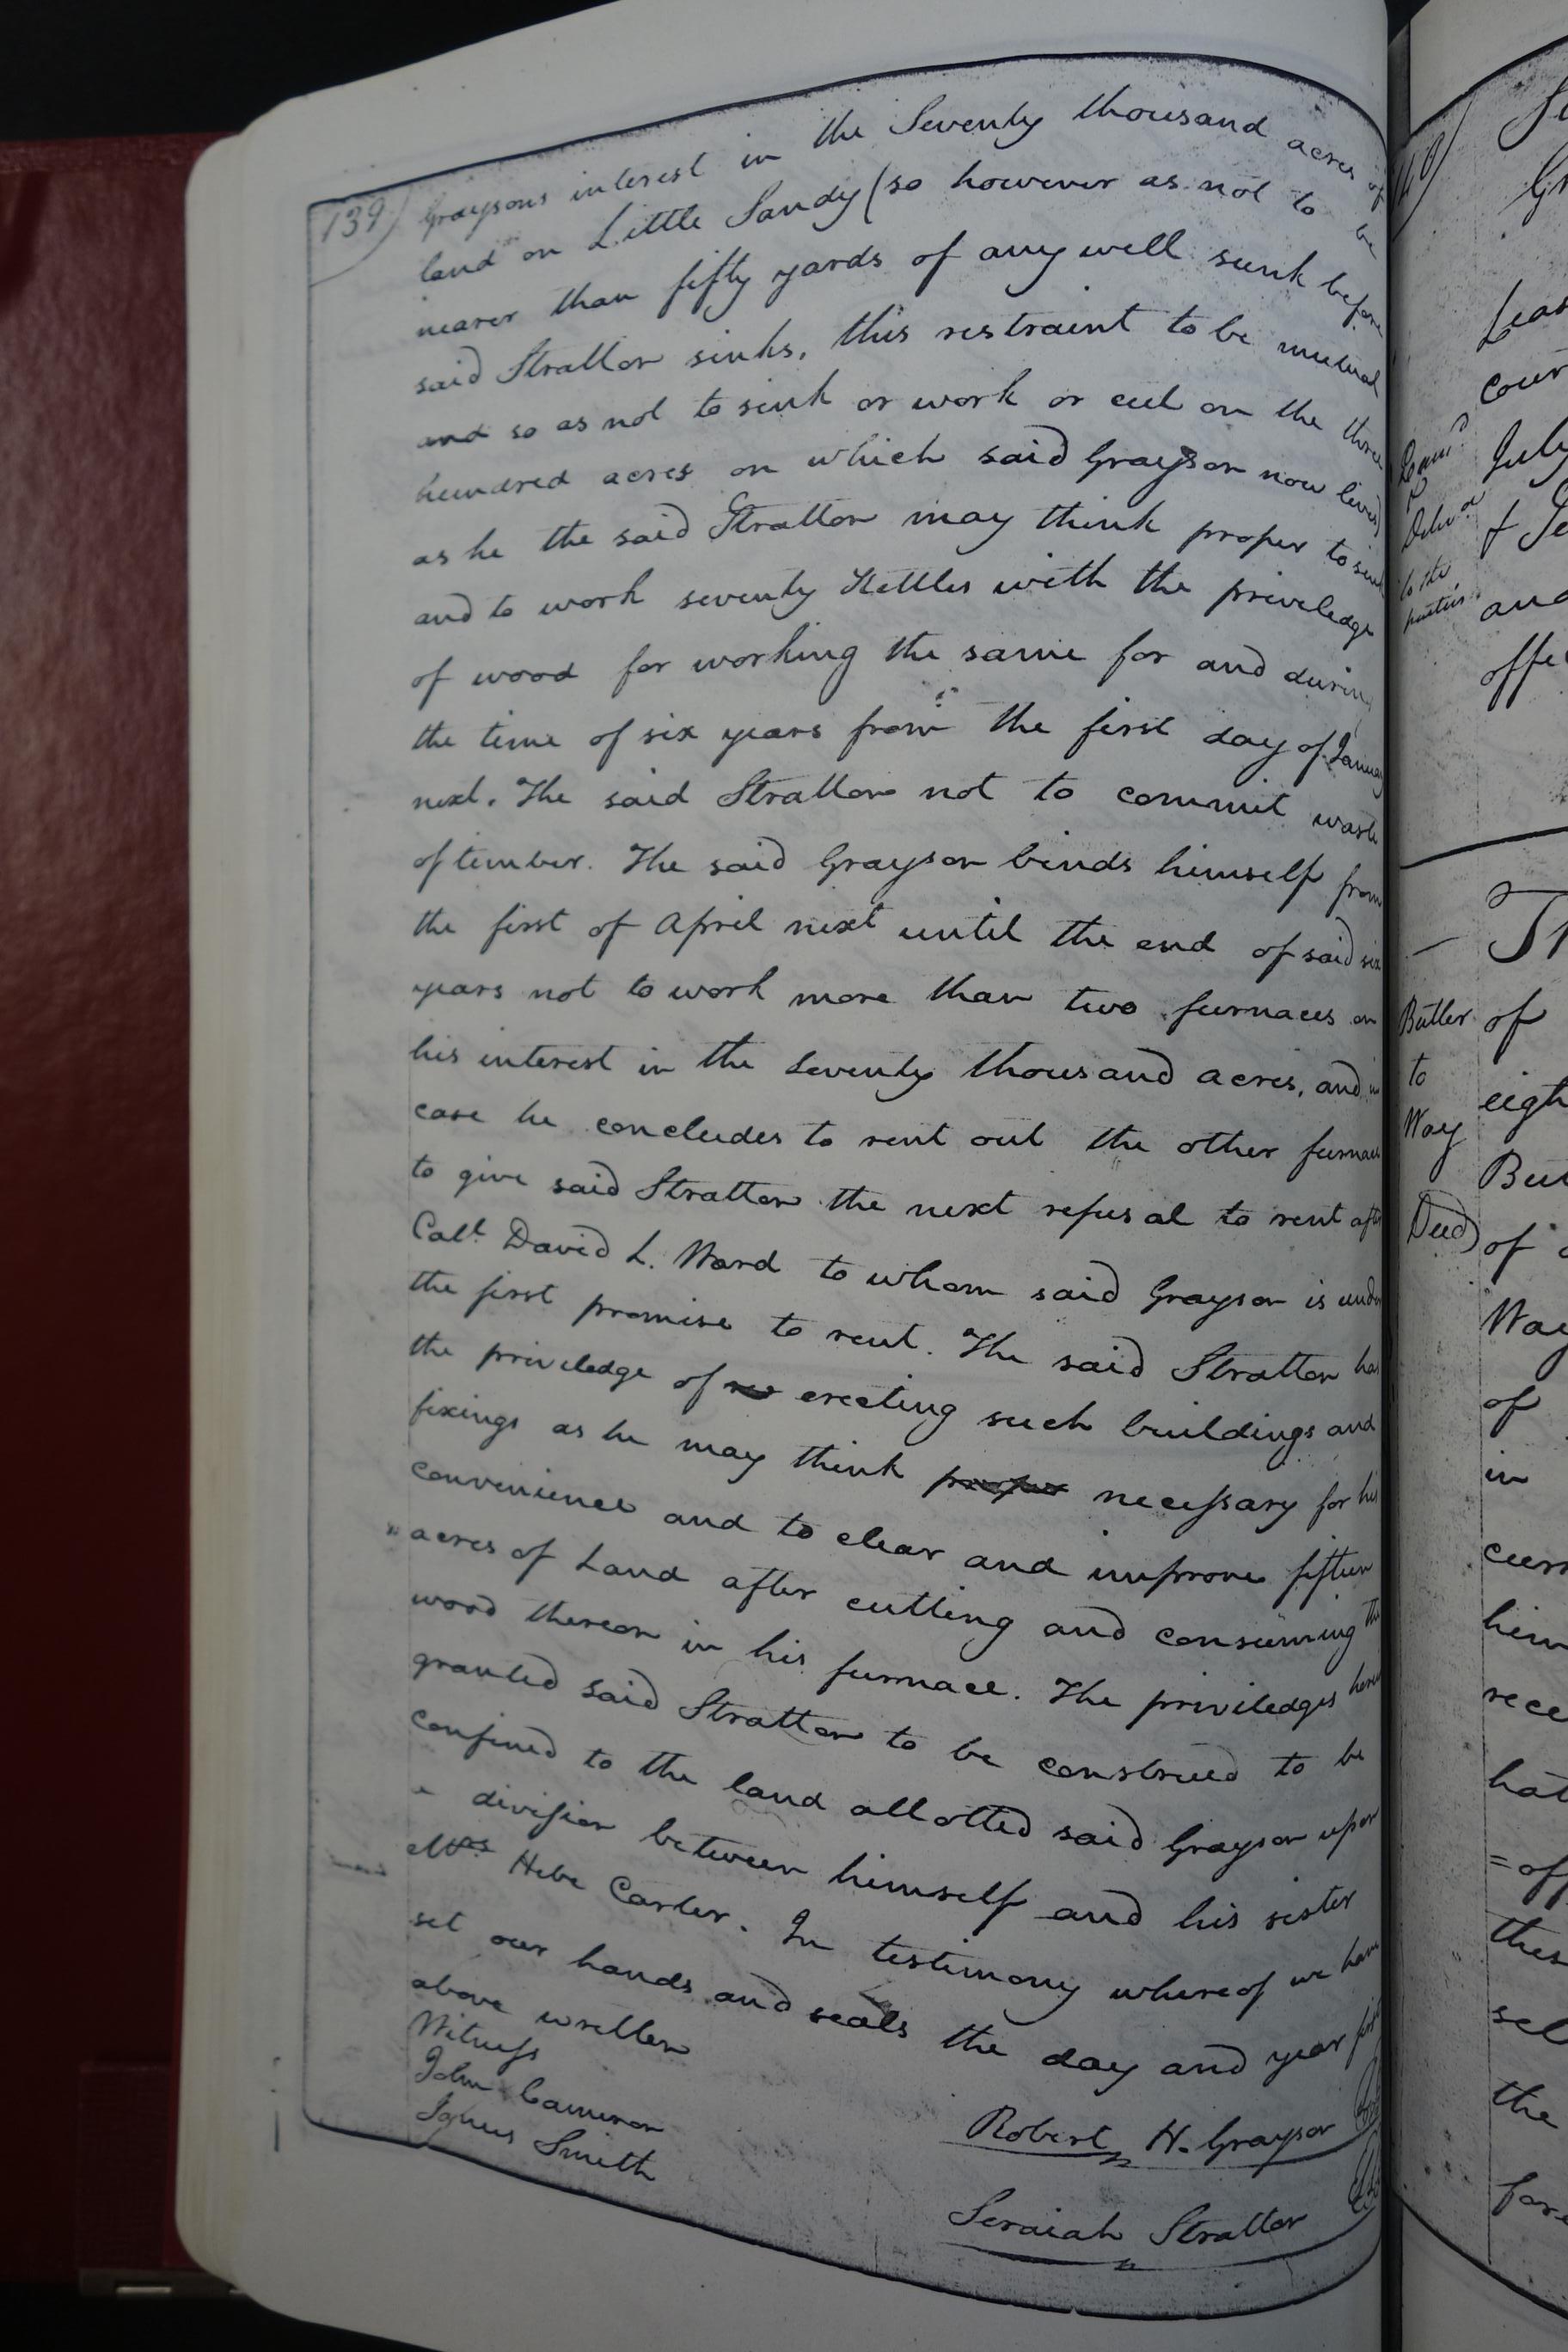 139)
Graysons interest in the Seventy thousand acres of
land on Little Sandy (so however as not to be
nearer than fifty yards of any well sunk before
said Stratton sinks, this restraint to be mutual
and so as not to sink or work or cut on the three
hundred acres on which said Grayson now lives)
as he the said Stratton may think proper to sink
and to work seventy Kettles with the priviledge
of wood for working the same for and during
the time of six years from the first day of January
next. The said Stratton not to commit waste
of timber. The said Grayson binds himself from
the first of April next until the end of said six
years not to work more than two furnaces on
his interest in the Seventy thousand acres, and in
case he concludes to rent out the other furnace
to give said Stratton the next refusal to rent after
Capt David L. Ward to whom said Grayson is under
the first promise to rent. The said Stratton has
the priviledge of erecting such buildings and
fixings as he may think proper necessary for his
convenience and to clear and improve fifteen
acres of Land after cutting and consuming the
wood thereon in his furnace. The priviledges herein
granted said Stratton to be construed to be
confined to the land allotted said Grayson upon
a division between himself and his sister
Mrs Hebe Carter. In testimony whereof we have
set our hands and seals the day and year first
above written
Witness
John Cameron
James Smith
Robert H. Grayson
Seraiah Stratton
140)
Exam<sup>d</sup>
&
Deliv<sup>d</sup>
to the
parties
July
and
Butler
to
Way
Deed
of
of
Way
of
in
the